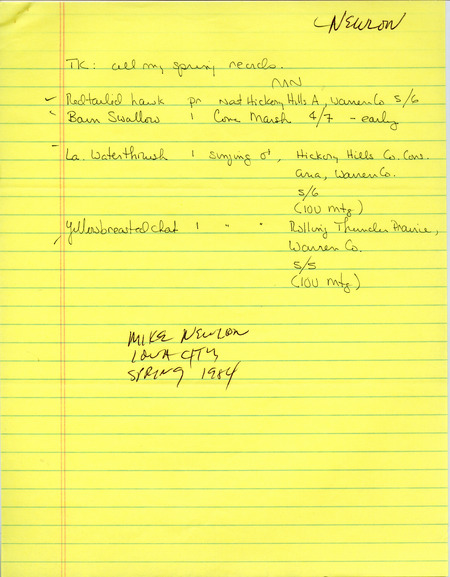 NEWLON
TK: all my spring records.
MN
Redtailed hawk pr Nest Hickory Hills A, Warren Co 5/6
Barn Swallow 1 Cone Marsh 4/7 - early
La. Waterthrush 1 singing ♂, Hickory Hills Co. Con.
area, Warren Co.
5/6
(IOU mtg)
Yellowbreasted chat 1 " " Rolling Thunder Prairie,
Warren Co.
5/5
(IOU mtg)
MIKE NEWLON
IOWA CITY
SPRING 1984